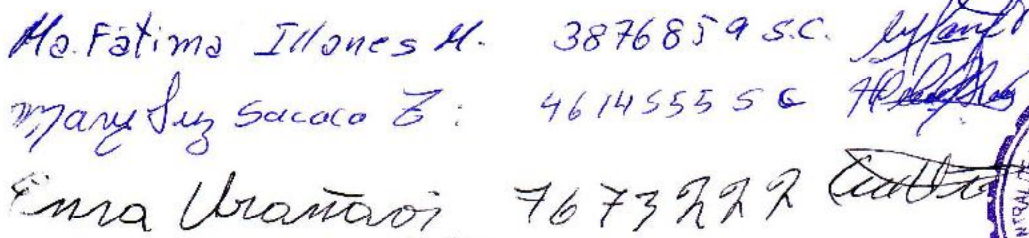 Ma. Fátima Illanes M. 3876859 S.C.
Mary Luz Sacaca Z. 4614555 SC
Enra Urañavi 7673222